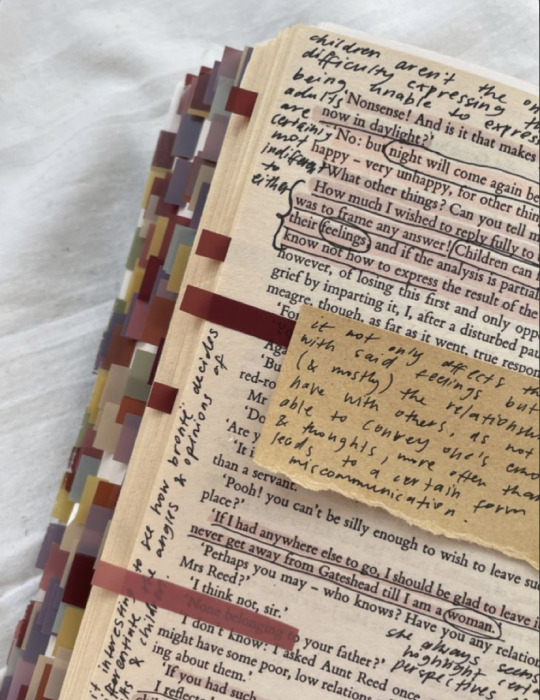 children aren't the
difficulty expressing the
being unable to express
adults
are
certainly
not
indifferent
to
either
'Nonsense! And is it that makes
now in daylight?'
'No: but night will come again be
happy – very unhappy, for other
'What other things? Can you tell m
How much I wished to reply fully to
was to frame any answer! Children can
their feelings, and if the analysis is partial
know not how to express the result of the
however, of losing this first and only opp
grief by imparting it, I, after a disturbed pau
meagre, though, as far as it went, true respon
'For
'Bu
red-ro
Mr
'Do
'Are y
'It i
than a servant.
'Pooh! you can't be silly enough to wish to leave su
place?'
'If I had anywhere else to go, I should be glad to leave i
never get away from Gateshead till I am a woman.
'Perhaps you may – who knows? Have you any relation
Mrs Reed?'
'I think not, sir.'
'None belonging to your father?'
I don't know: I asked Aunt Reed once
might have some poor, low relations
ing about them.'
'If you had such
I reflected
it not only affects
with said feelings but
(& mostly) the relationsh
have with others, as not
able to convey one's emo
& thoughts, more often than
leads to a certain form
miscommunication.
to see how brontë decides
angles & opinions of
she always seems
highlight
perspecti